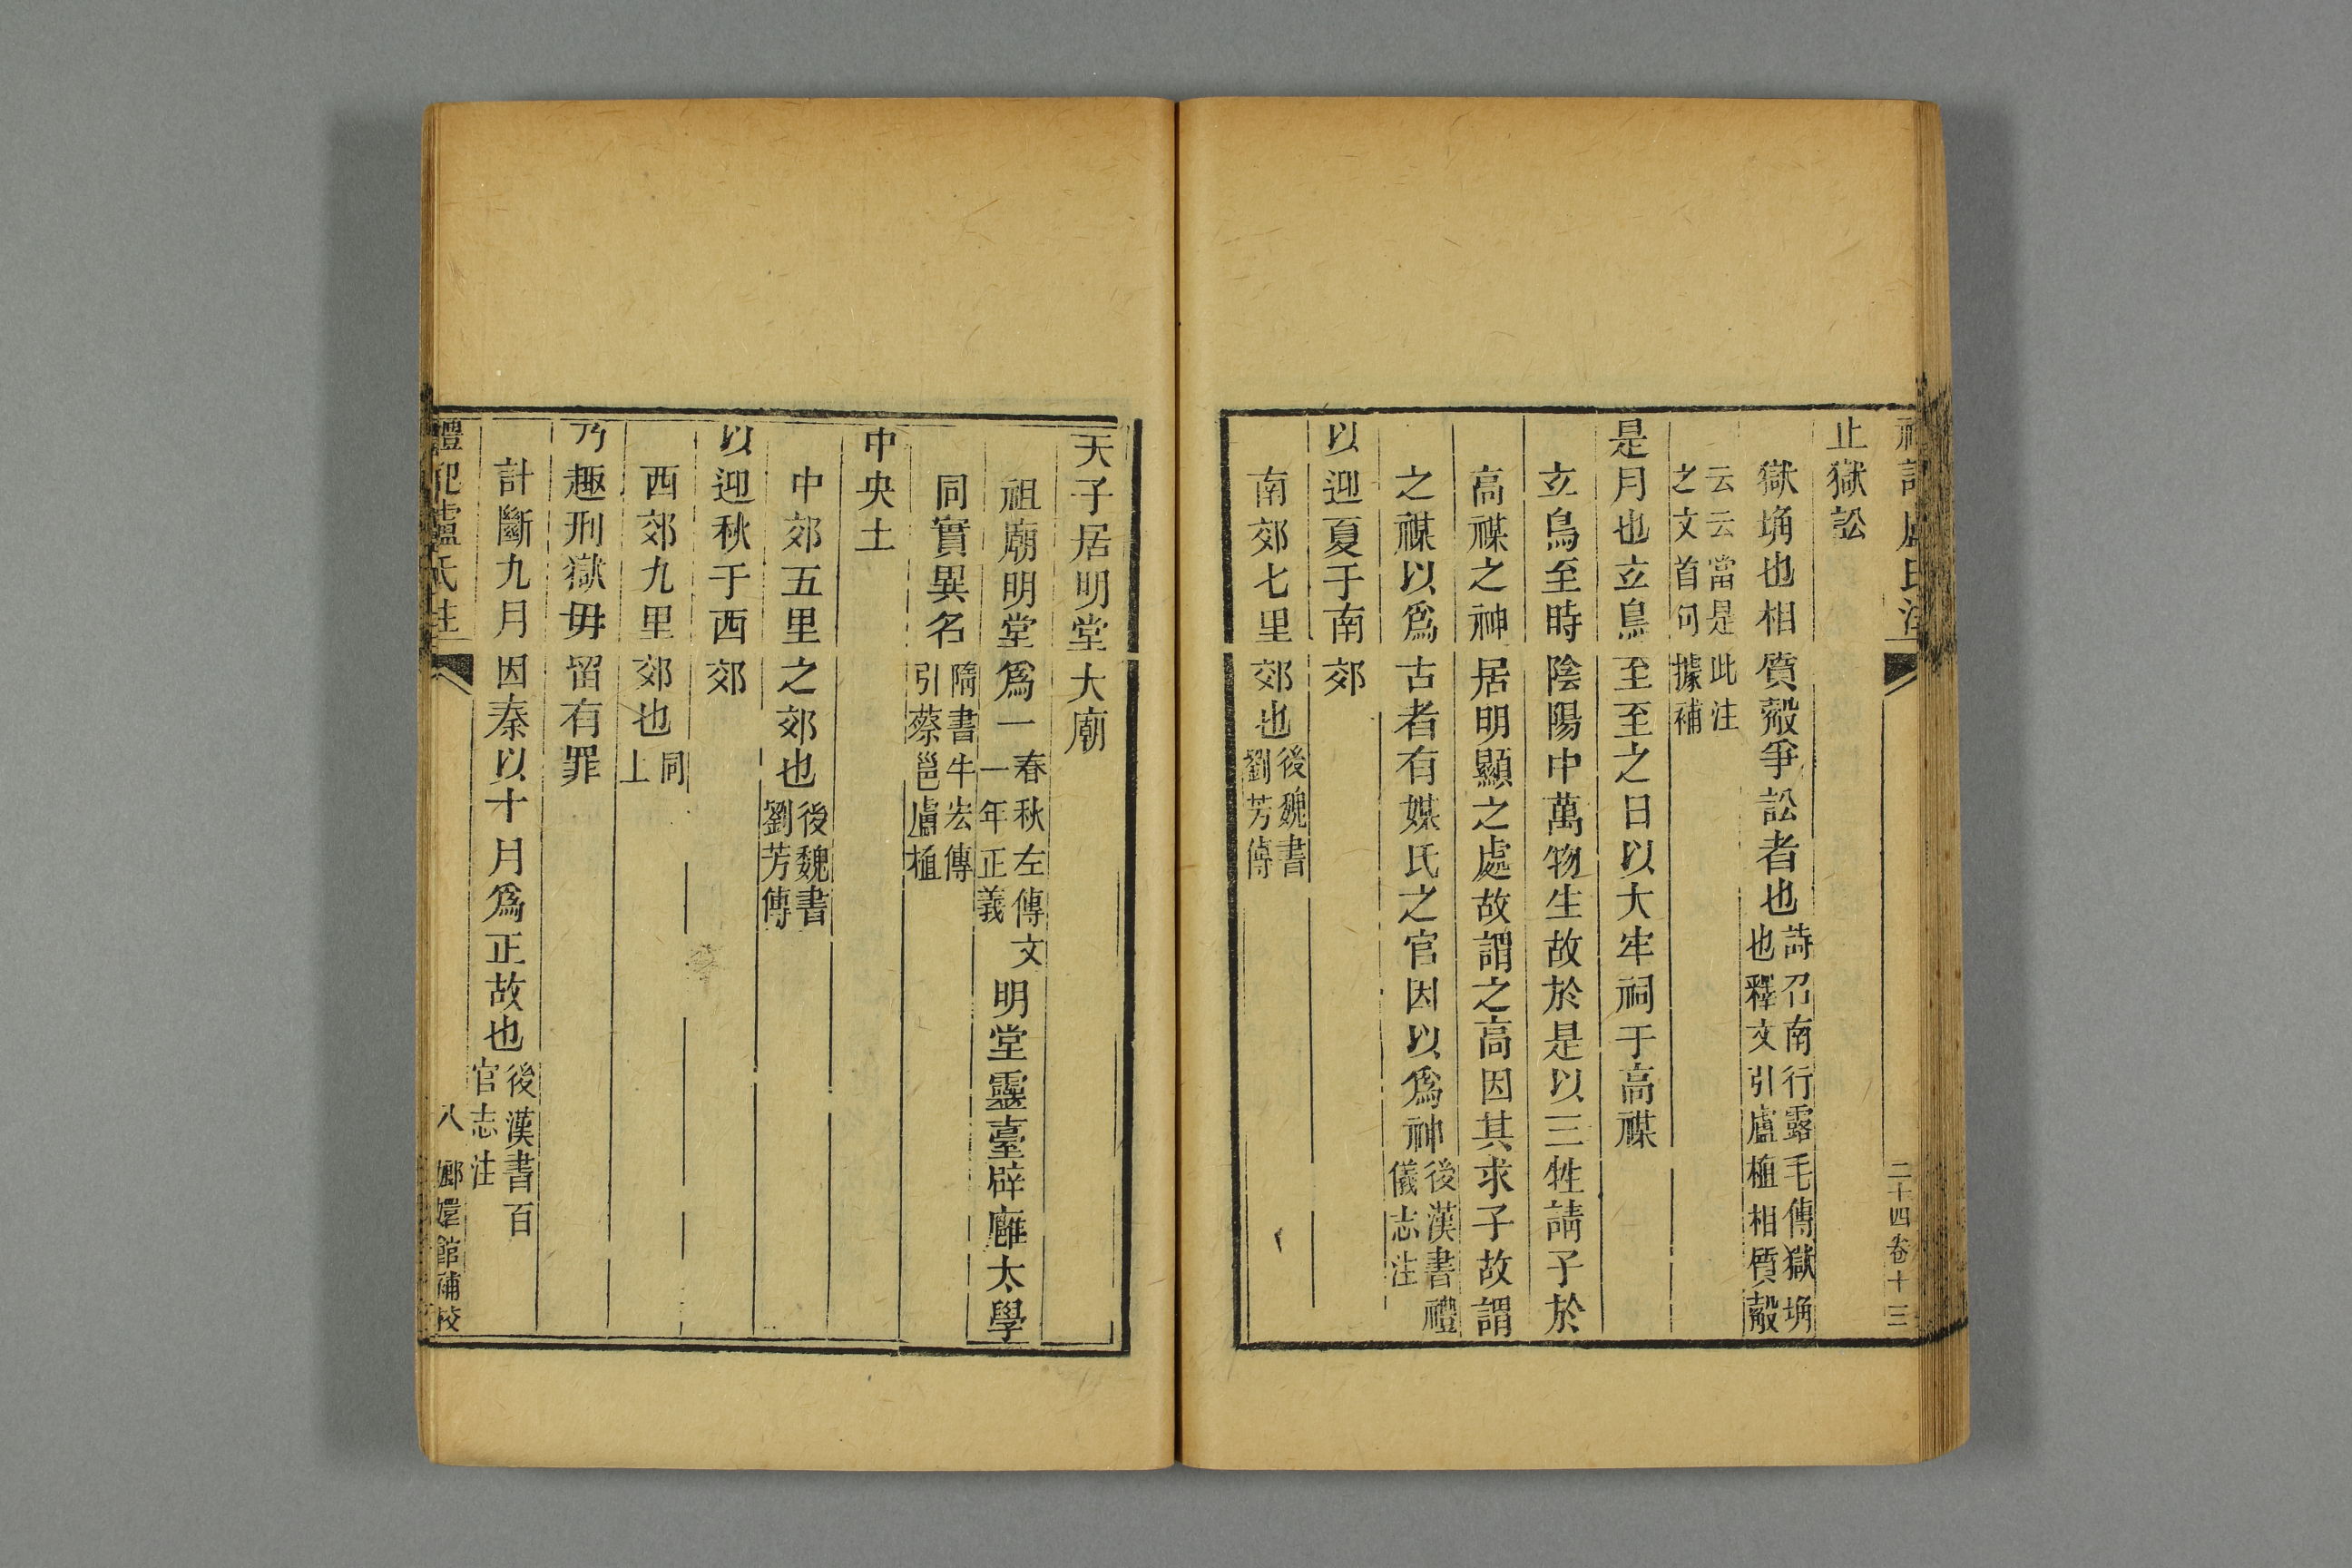 禮記盧氏注 二十四卷十三
止獄訟
獄埆也相質觳爭訟者也詩召南行露毛傳獄埆也釋文引盧植相質觳
云云當是此注之文首句據補
是月也玄鳥至至之日以大牢祠于高禖
玄鳥至時陰陽中萬物生故於是以三牲請子於
高禖之神居明顯之處故謂之高因其求子故謂
之禖以爲古者有媒氏之官因以爲神後漢書禮儀志注
以迎夏于南郊
南郊七里郊也後魏書劉芳傳
天子居明堂大廟
祖廟明堂爲一春秋左傳文二年正義明堂靈臺辟廱太學
同實異名隋書牛宏傳引蔡邕盧植
中央土
中郊五里之郊也後魏書劉芳傳
以迎秋于西郊
西郊九里郊也同上
乃趣刑獄毋留有罪
計斷九月因秦以十月爲正故也後漢書百官志注
禮記盧氏注 八 嫏嬛館補校